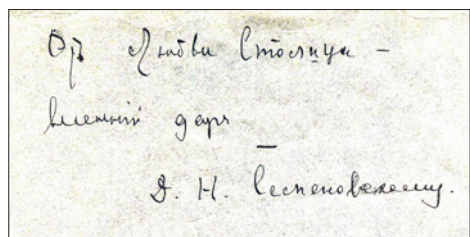 Отъ Любви Столицы –
весенній даръ –
Д. Н. Семеновскому.